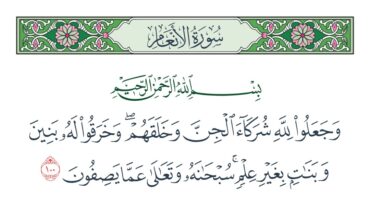 سُورَةُ الأَنْعَامِ
بِسْمِ اللَّهِ الرَّحْمَٰنِ الرَّحِيمِ
وَجَعَلُوا۟ لِلَّهِ شُرَكَآءَ ٱلْجِنَّ وَخَلَقَهُمْ ۖ وَخَرَقُوا۟ لَهُۥ بَنِينَ
وَبَنَٰتٍۭ بِغَيْرِ عِلْمٍ ۚ سُبْحَٰنَهُۥ وَتَعَٰلَىٰ عَمَّا يَصِفُونَ ١٠٠